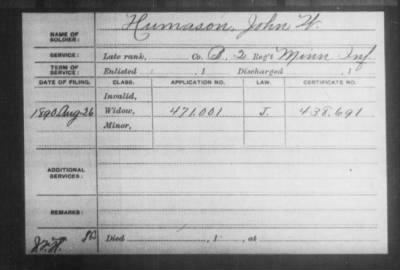 NAME OF SOLDIER: Humason, John W.
SERVICE: Late rank, Co. B, 2 Reg't Minn Inf.
TERM OF SERVICE: Enlisted , 1 Discharged , 1
DATE OF FILING. CLASS. APPLICATION NO. LAW. CERTIFICATE NO.
Invalid,
1890 Aug 26 Widow, 471.001 J. 438.691
Minor,
ADDITIONAL SERVICES:
REMARKS:
Died , 1 , at